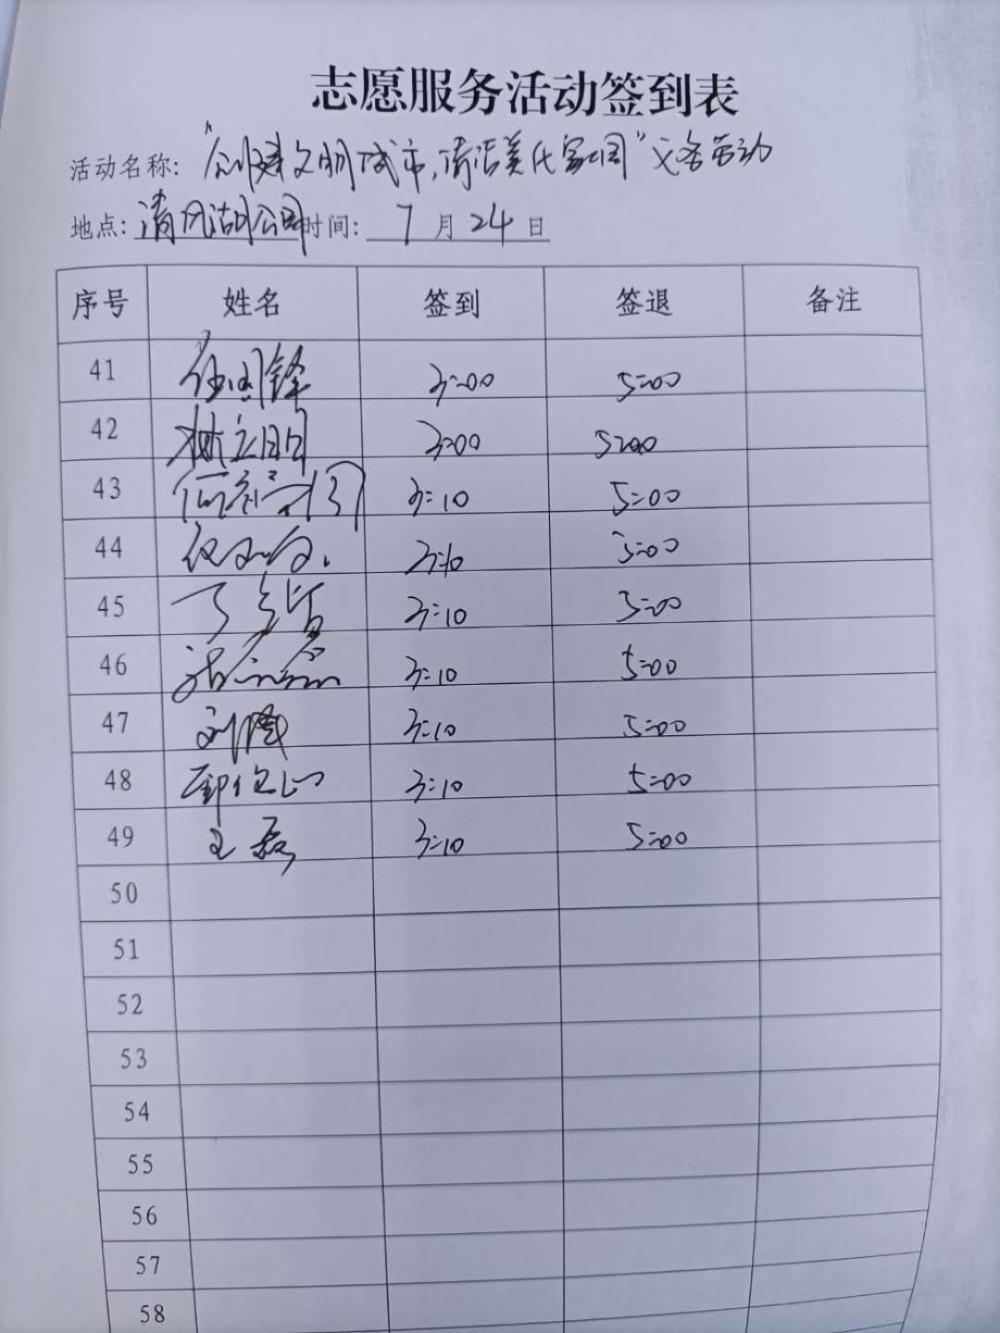 志愿服务活动签到表
活动名称: "创建文明城市,清洁美化家园"义务劳动
地点: 清风湖公园 时间: 7月24日
序号 姓名 签到 签退 备注
41 3:00 5:00
42 林立明 3:00 5:00
43 3:10 5:00
44 3:10 5:00
45 3:10 5:00
46 3:10 5:00
47 刘 3:10 5:00
48 3:10 5:00
49 王磊 3:10 5:00
50
51
52
53
54
55
56
57
58